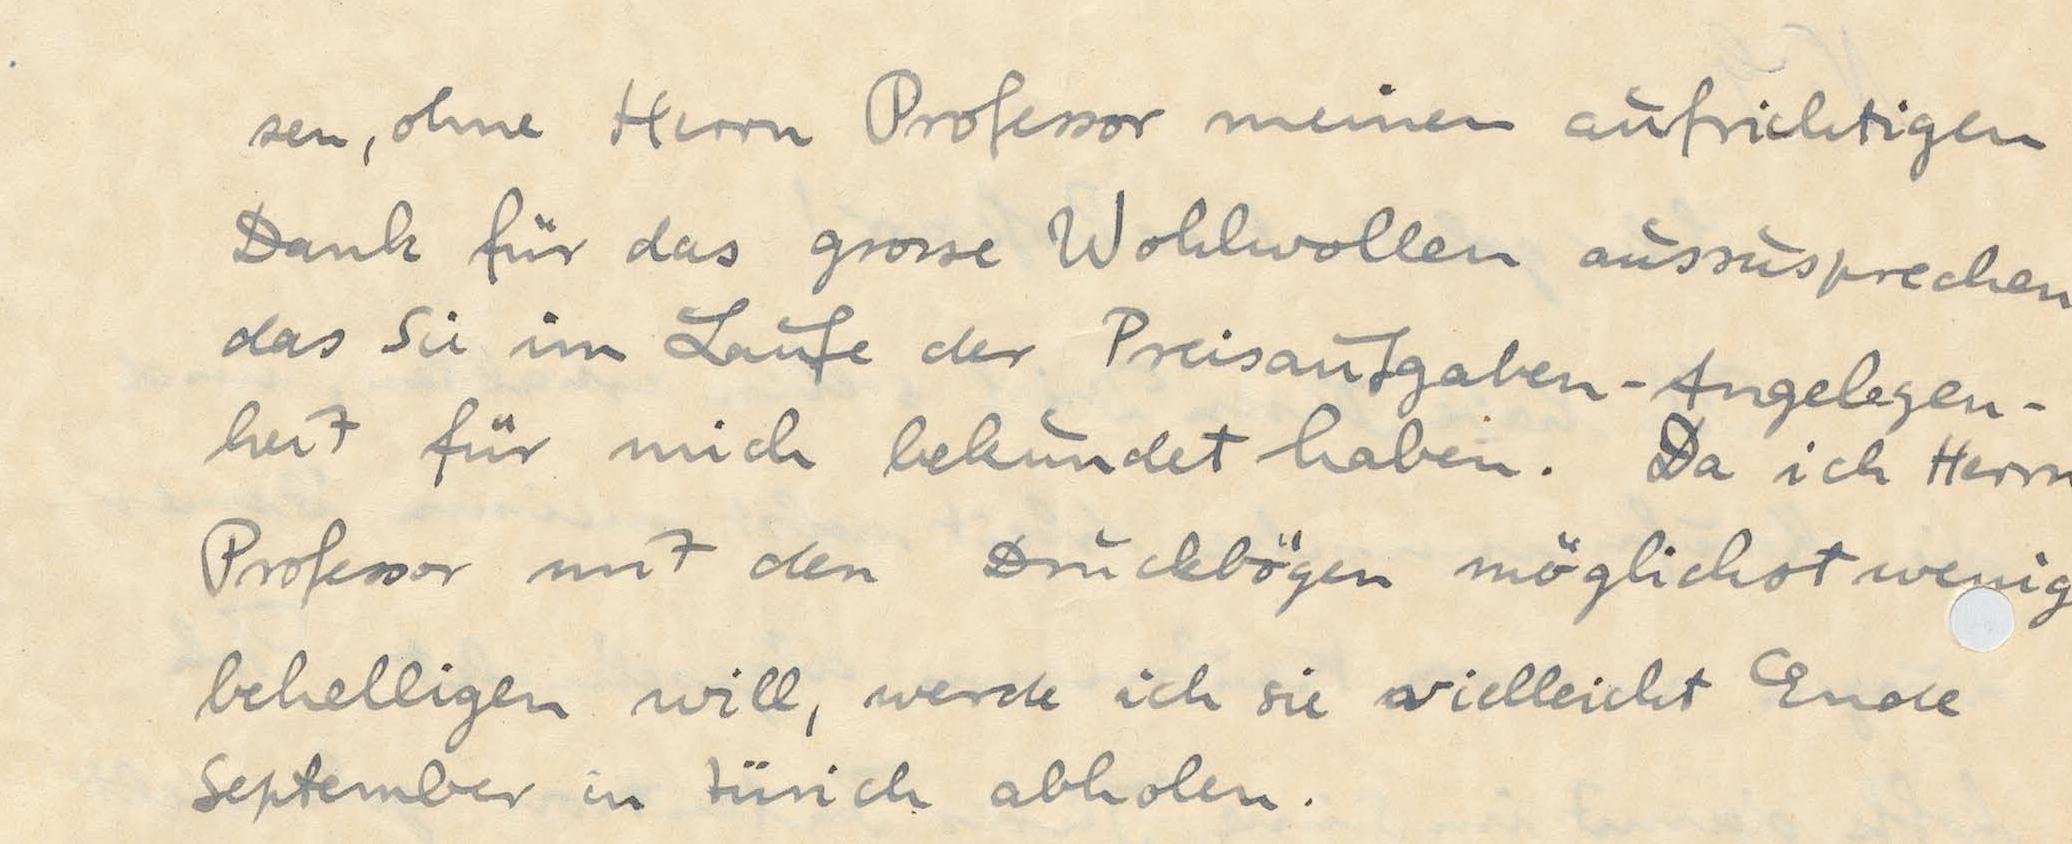 sen, ohne Herrn Professor meinen aufrichtigen
Dank für das grosse Wohlwollen auszusprechen
das Sie im Laufe der Preisaufgaben-Angelegen-
heit für mich bekundet haben. Da ich Herrn
Professor mit den Druckbögen möglichst wenig
behelligen will, werde ich sie vielleicht Ende
September in Zürich abholen.